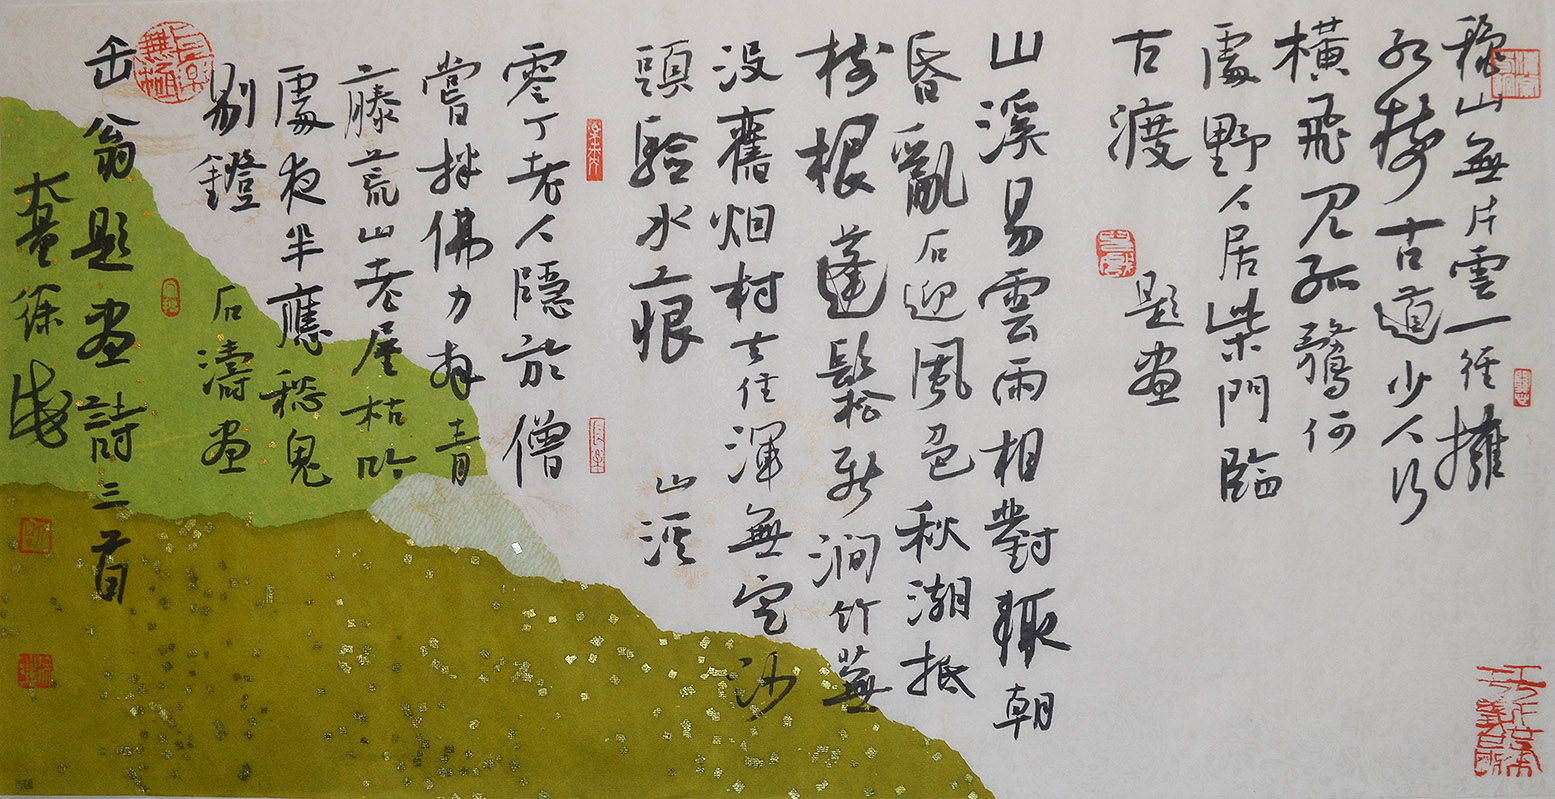 穐山無片雲一徑擁
紅樹古道少人行
橫飛見孤鶩何
處野人居柴門臨
古渡
題畫
山溪易雲雨相對輙朝
昏亂石迎風色秋潮抵
樹根蓬鬆新澗竹蕪
没舊烟村去住渾無定沙
頭驗水痕 山溪
零丁老人隱於僧
嘗拌佛力青
藤荒山老屋枯吟
處夜半應愁鬼
剔鐙 石濤畫
缶翁題畫詩三首
徐
長樂無極
長樂